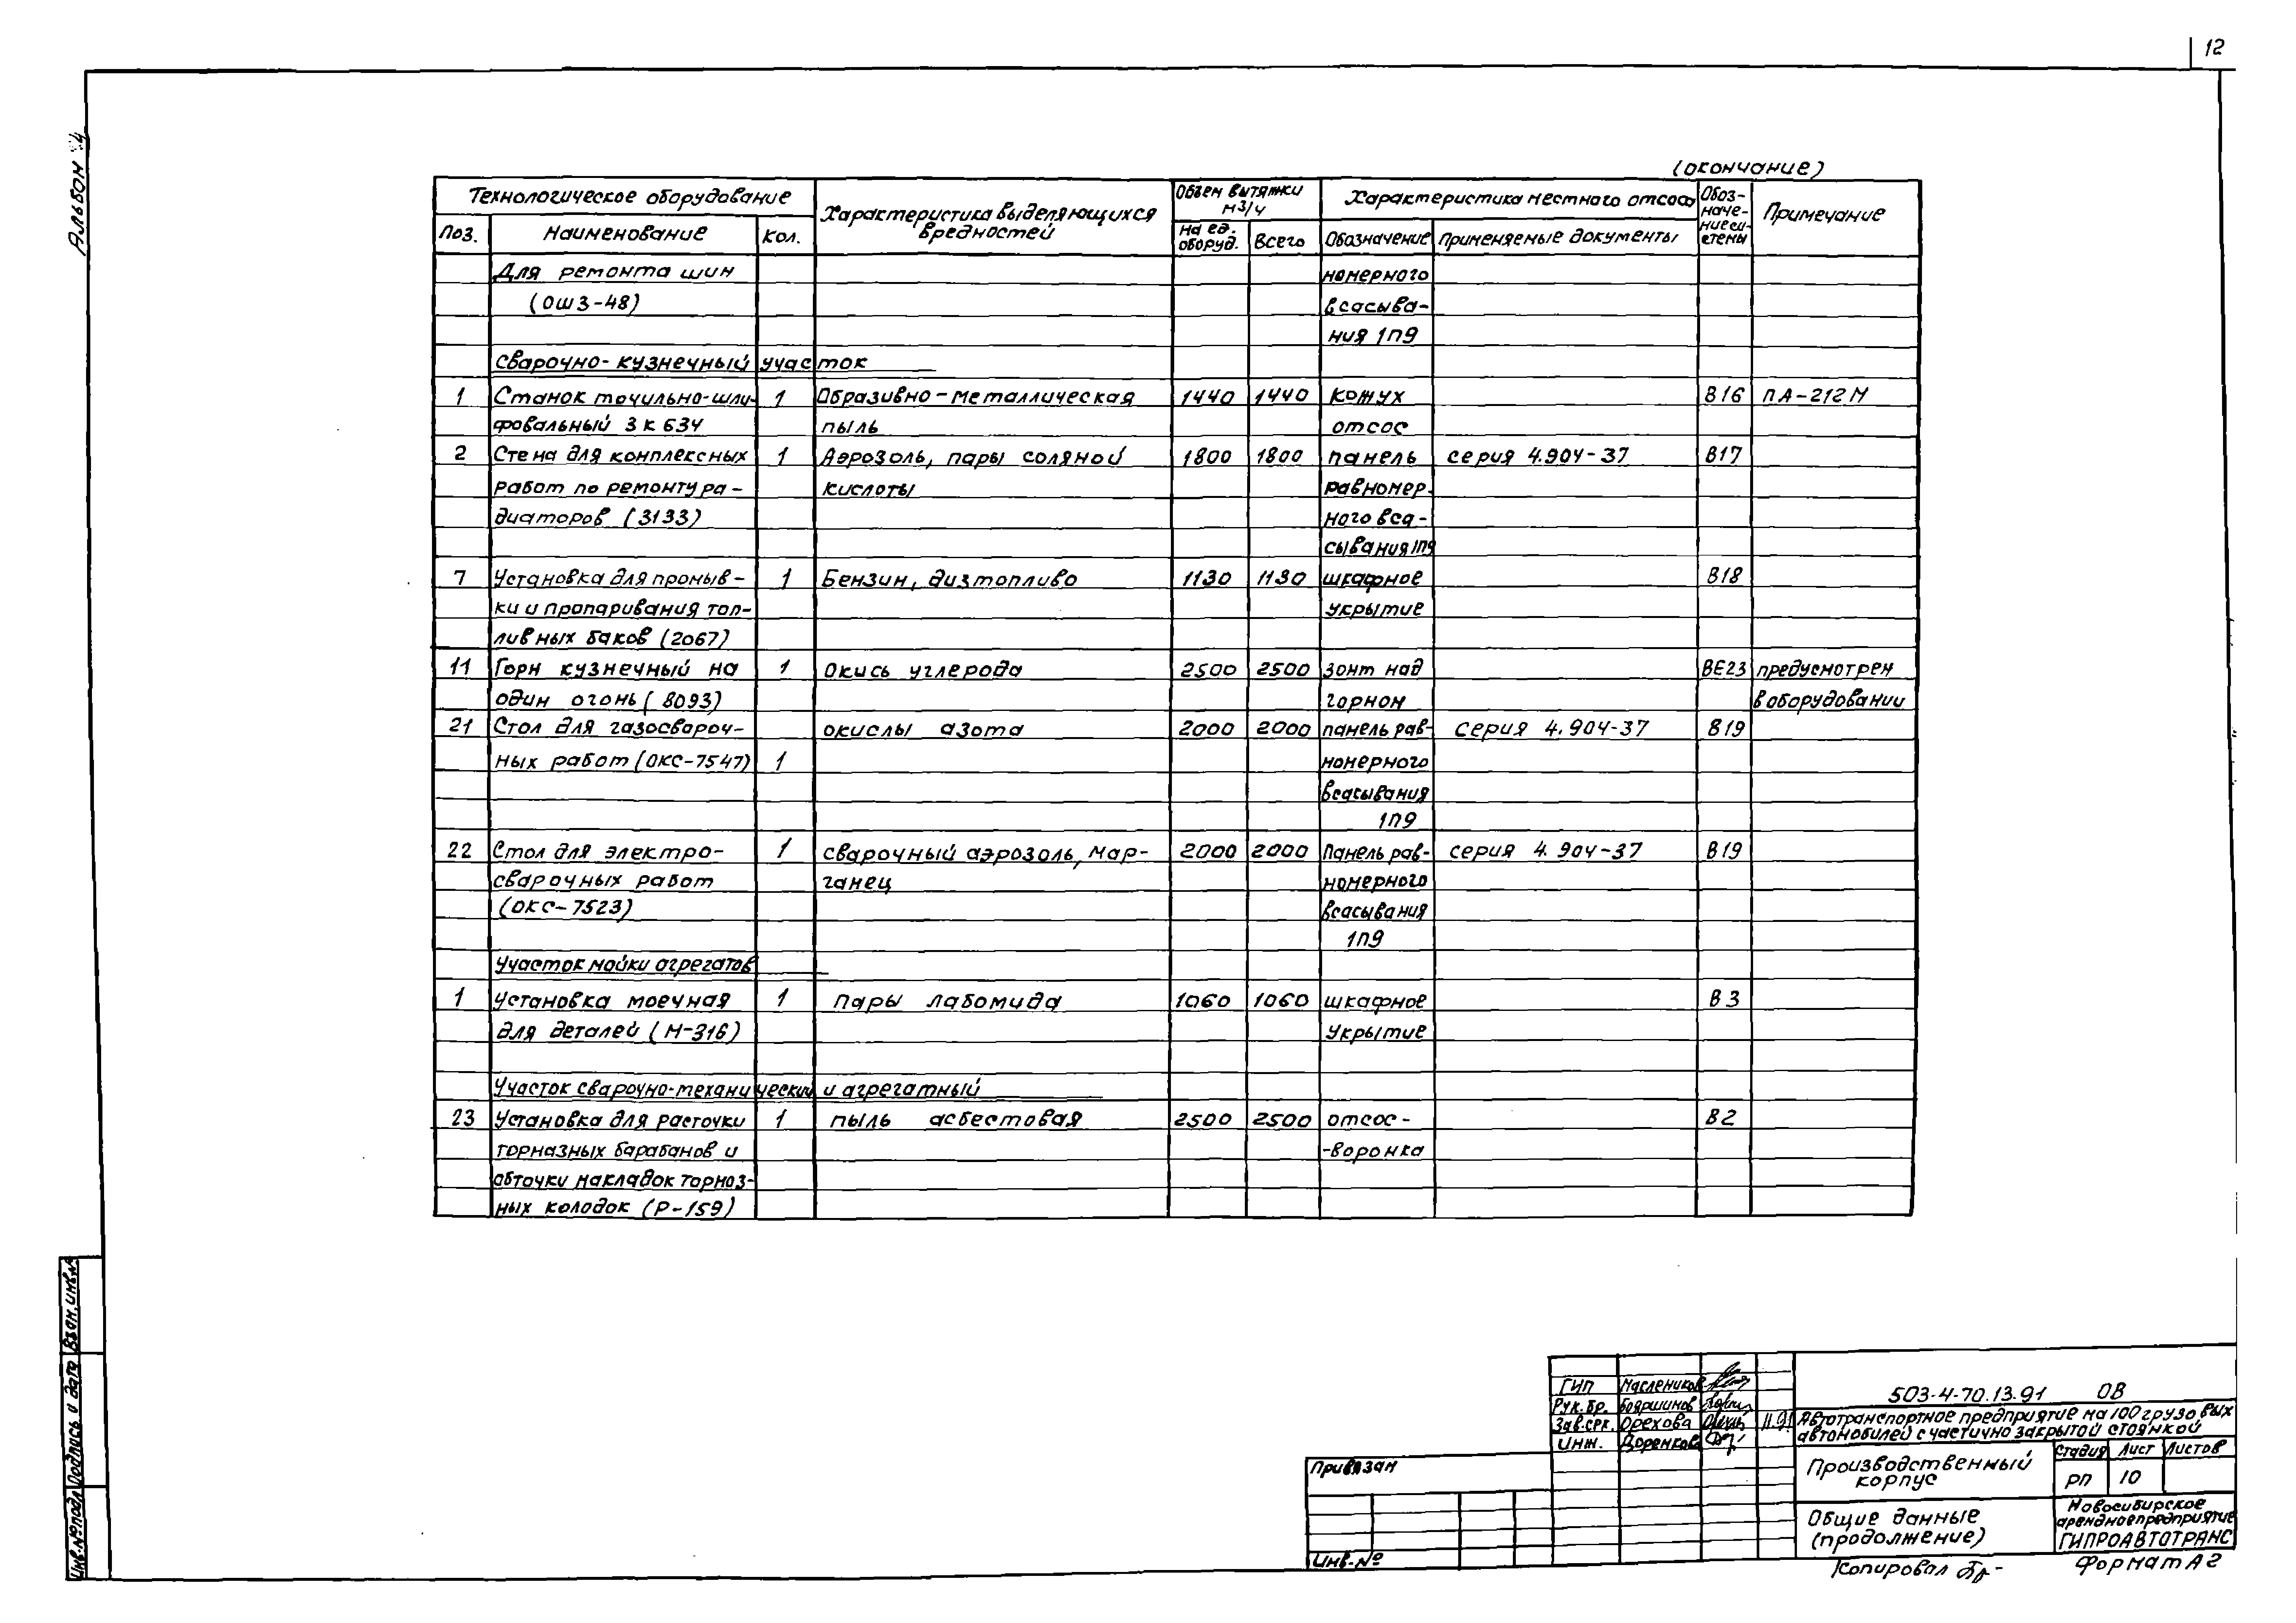 12
Альбом 4
(окончание)
Технологическое оборудование
Характеристика выделяющихся вредностей
Объем вытяжки м3/ч
Характеристика местного отсоса
Обоз-наче-ние си-стемы
Примечание
Поз.
Наименование
Кол.
на ед. оборуд.
Всего
Обозначение
Применяемые документы
Для ремонта шин номерного
(ОШЗ-48) всасыва-
ния 1п9
Сварочно-кузнечный участок
1 Станок точильно-шли- 1 Образивно-металлическая 1440 1440 Кожух В16 ПА-212М
фовальный 3К634 пыль отсос
2 Стена для комплексных 1 Аэрозоль, пары соляной 1800 1800 панель серия 4.904-37 В17
работ по ремонту ра- кислоты равномер-
диаторов (3133) ного вса-
сывания 1п9
7 Установка для промыв- 1 Бензин, дизтопливо 1130 1130 шкафное В18
ки и пропаривания топ- укрытие
ливных баков (2067)
11 Горн кузнечный на 1 Окись углерода 2500 2500 зонт над ВЕ23 предусмотрен
один огонь (8093) горном в оборудовании
21 Стол для газосвароч- окислы азота 2000 2000 панель рав- серия 4.904-37 В19
ных работ (ОКС-7547) 1 номерного
всасывания
1п9
22 Стол для электро- 1 сварочный аэрозоль, мар- 2000 2000 Панель рав- серия 4.904-37 В19
сварочных работ ганец номерного
(ОКС-7523) всасывания
1п9
Участок мойки агрегатов
1 Установка моечная 1 пары лабомида 1060 1060 шкафное В3
для деталей (М-316) Укрытие
Участок сварочно-механический и агрегатный
23 Установка для расточки 1 пыль асбестовая 2500 2500 отсос- В2
тормазных барабанов и -воронка
обточки накладок тормоз-
ных колодок (Р-159)
Взам. инв.№
Подпись и дата
Инв.№ подл.
ГИП Маслеников
Рук.бр. Бояршинов
Зав.срк. Орехова 11.91
Инж. Воренков
503-4-70.13.91 ОВ
Автотранспортное предприятие на 100 грузовых
автомобилей с частично закрытой стоянкой
Производственный
корпус
Стадия Лист Листов
РП 10
Общие данные
(продолжение)
Новосибирское
арендное предприятие
ГИПРОАВТОТРАНС
Привязан
Инв.№
Копировал
Формат А2